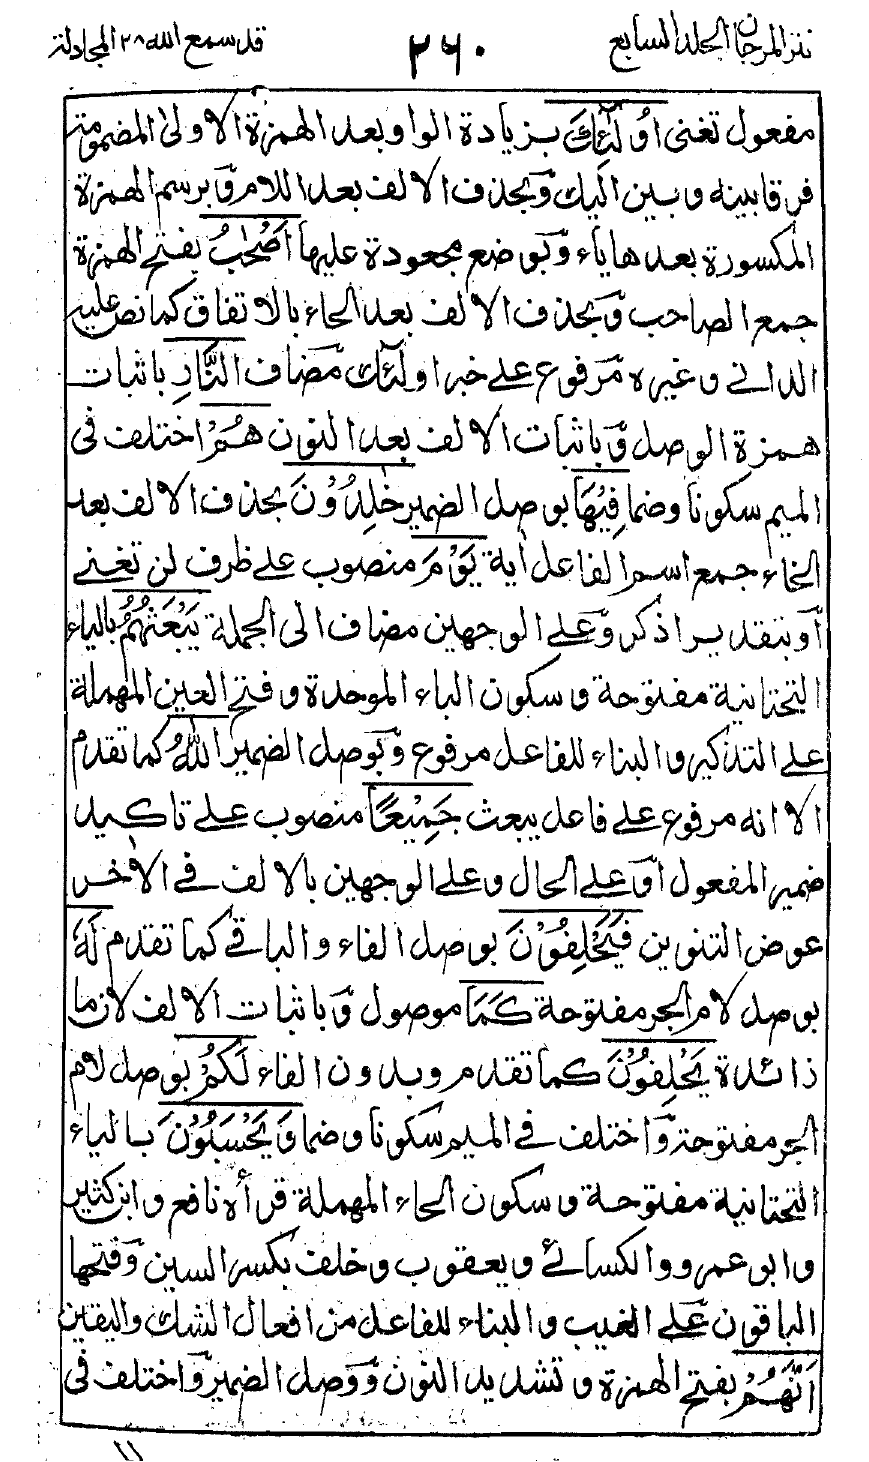 نثر المرجان الجلد السابع ٢٦٠ قد سمع الله ٢٨ المجادلة
مفعول تغنى اُولٰٓئِكَ بزيادة الواو بعد الهمزة الاولى المضمومة
فرقا بينه وبين اليك وَبحذف الالف بعد اللام وَبرسم الهمزة
المكسورة بعدها ياء وَبوضع مجعودة عليها اَصْحٰبُ بفتح الهمزة
جمع الصاحب وَبحذف الالف بعد الحاء بالاتفاق كما نص عليه
الدانى وغيره مَرفوع على خبر اولٰٓئك مَضاف النَّارِ باثبات
همزة الوصل وَباثبات الالف بعد النون هُمْ اختلف فى
الميم سكونا وضما فِيْهَا بوصل الضمير خٰلِدُوْنَ بحذف الالف بعد
الخاء جمع اسم الفاعل اٰية يَوْمَ منصوب على ظرف لن تغنى
اَو بتقدير اذكر وَعلى الوجهين مضاف الى الجملة يَبْعَثُهُمُ بالياء
التحتانية مفتوحة وسكون الباء الموحدة وفتح العين المهملة
على التذكير والبناء للفاعل مرفوع وَبوصل الضمير اللهُ كما تقدم
الا انه مرفوع على فاعل يبعث جَمِيْعًا منصوب على تاكيد
ضمير المفعول اَو على الحال وعلى الوجهين بالالف فى الاٰخر
عوض التنوين فَيَحْلِفُوْنَ بوصل الفاء والباقى كما تقدم لَهٗ
بوصل لام الجر مفتوحة كَمَا موصول وَباثبات الالف لان ما
زائدة يَحْلِفُوْنَ كما تقدم وبدون الفاء لَكُمْ بوصل لام
الجر مفتوحة وَاختلف فى الميم سكونا وضما وَيَحْسَبُوْنَ بالياء
التحتانية مفتوحة وسكون الحاء المهملة قرأه نافع وابن كثير
وابو عمرو والكسائى ويعقوب وخلف بكسر السين وَفتحها
الباقون عَلى الغيب والبناء للفاعل من افعال الشك واليقين
اَنَّهُمْ بفتح الهمزة وتشديد النون وَوصل الضمير وَاختلف فى